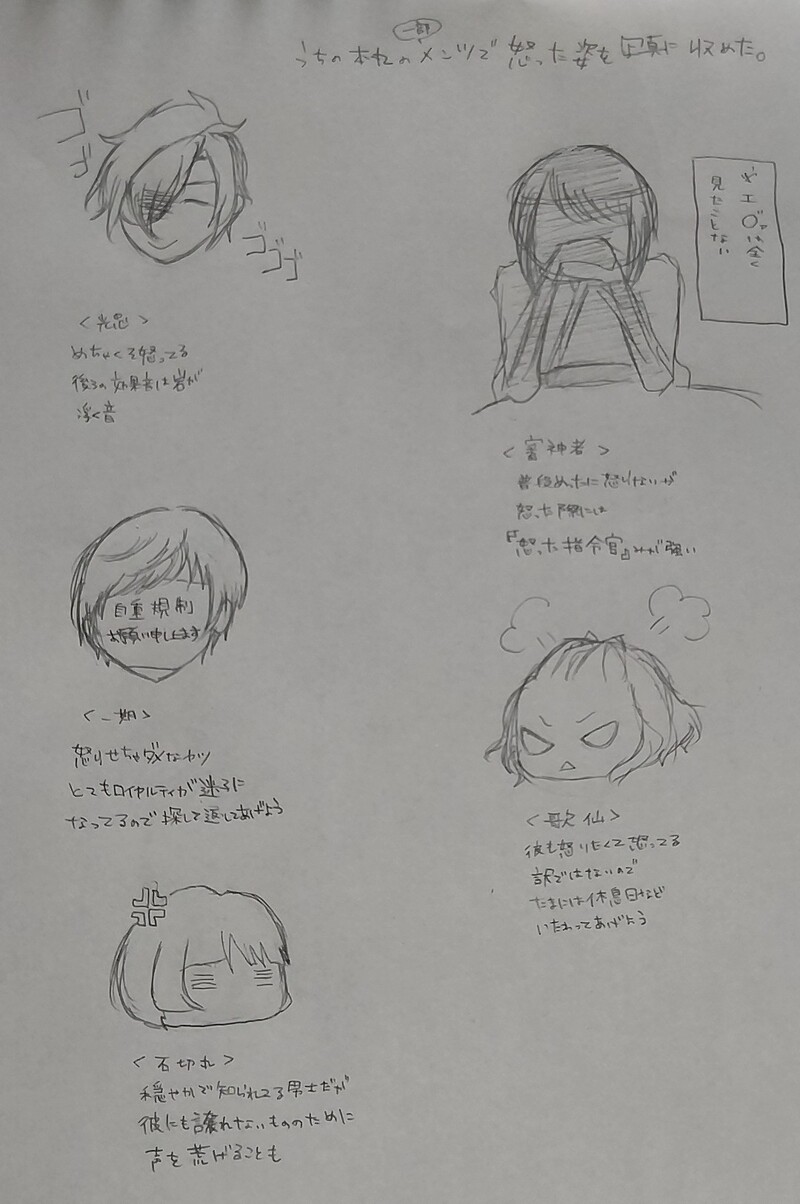 一部
うちの本丸のメンツで怒った姿を写真に収めた。
ゴゴ
ゴゴゴ
<光忠>
めちゃくそ怒ってる
後ろの効果音は岩が
浮く音
※エ○ァは全く
見たことない
<審神者>
普段めったに怒りないが
怒った際には
『怒った指令官』みが強い
自重規制
お願い申し上げます
<一期>
怒りせちゃダメなヤツ
とてもロイヤルティが迷子に
なってるので探して返してあげよう
<歌仙>
彼も怒りたくて怒ってる
訳ではないので
たまには休息日など
いたわってあげよう
<石切丸>
穏やかで知られてる男士だが
彼にも譲れないもののために
声を荒げることも